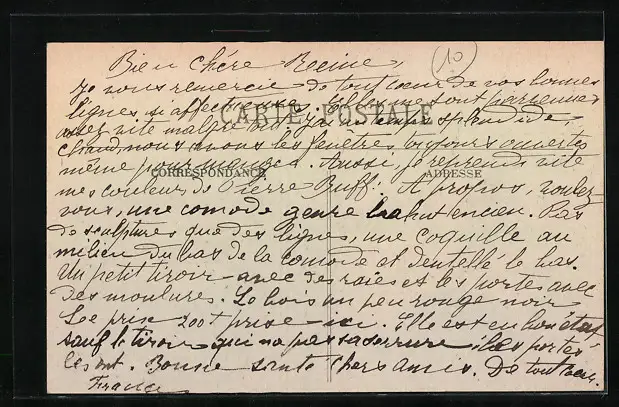 Bien Chére Reine,
10
Je vous remercie de tout cœur de vos bonnes
lignes, si affectueuses. Elles me sont parvenues
CARTE POSTALE
assez vite malgré splendide,
chaud nous avons les fenêtres toujours ouvertes
même pour manger. Aussi, je reprends vite
CORRESPONDANCE
ADRESSE
mes couleurs de Pierre Buff! A propos, voulez
vous, une comode genre bahut encien. Pas
de sculptures que des lignes, une coquille au
milieu du bas de la comode et dentellé le bas.
Un petit tiroir avec des raies et les portes avec
des moulures. Le bois un peu rouge noir
Le prix 200f prise ici. Elle est en bon état
sauf le tiroir qui na pas sa serrure les portes
les ont. Bonne santé chers amis. De tout cœur
France